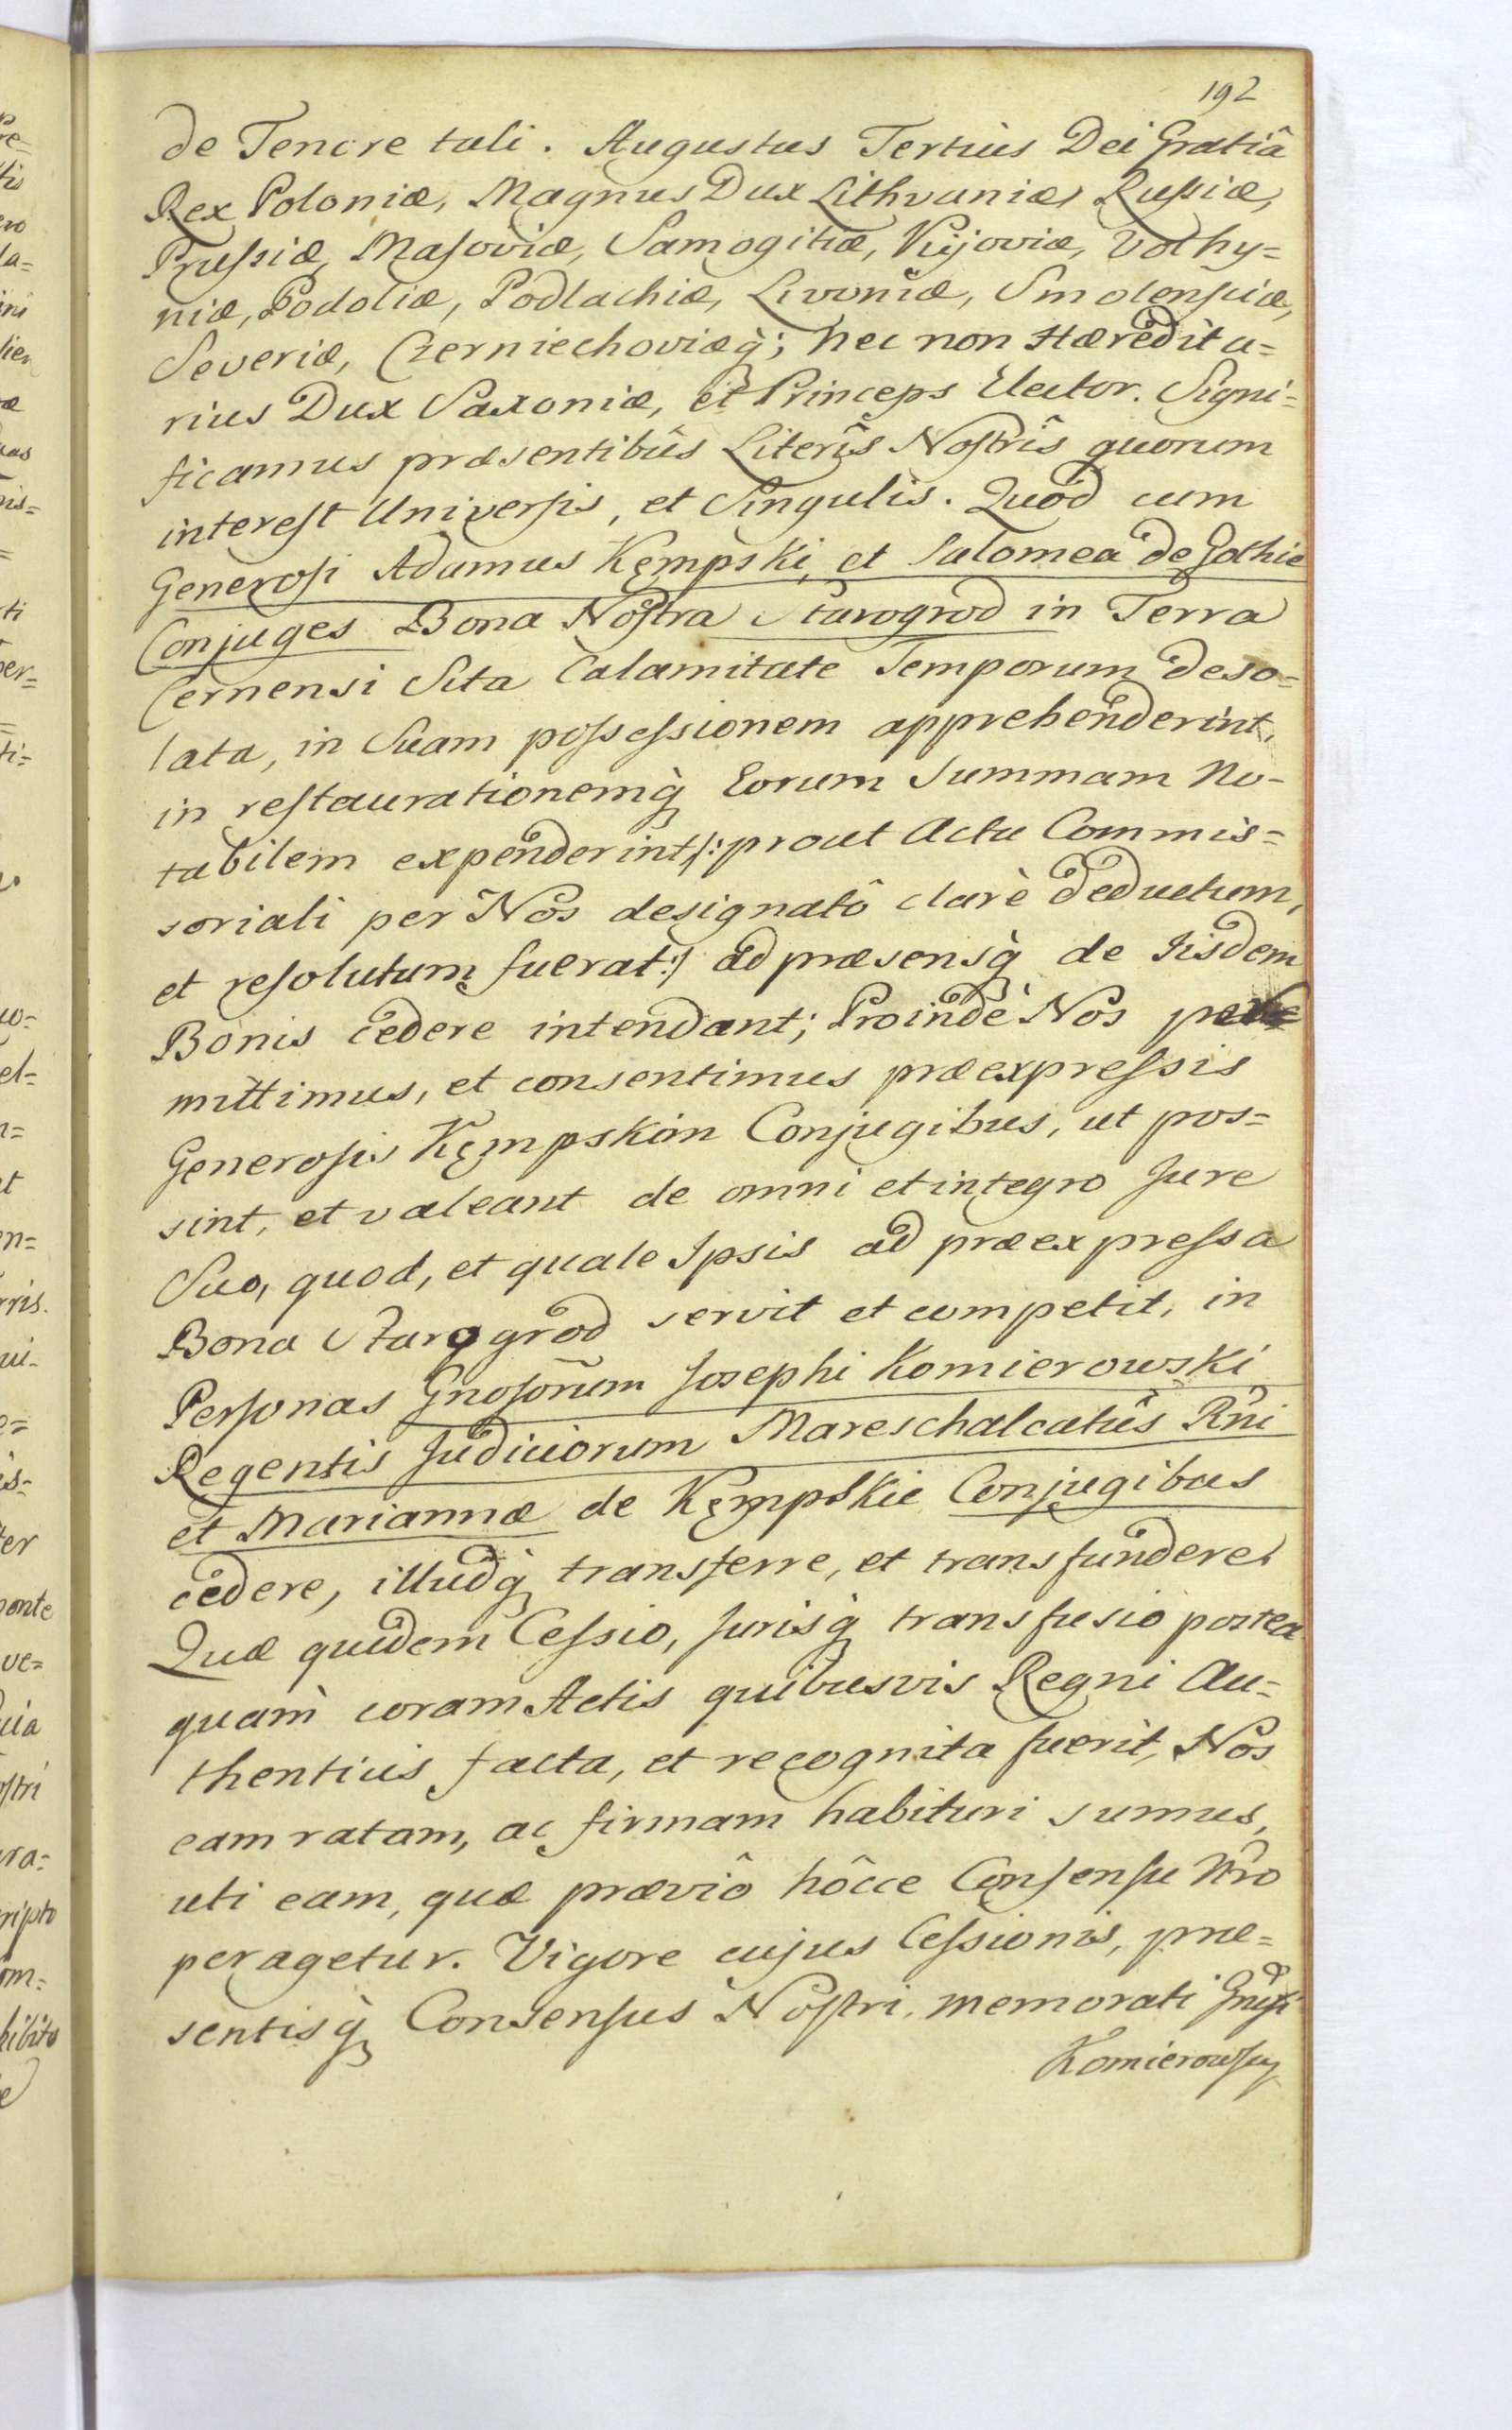 192
de Tenore tali. Augustus Tertiùs Dei Gratiâ
Rex Poloniæ, Magnus Dux Lithvaniæ, Rußiæ,
Prußiæ, Masoviæ, Samogitiæ, Kijoviæ, Volhy=
niæ, Podoliæ, Podlachiæ, Livoniæ, Smolensciæ,
Severiæ, Czerniechoviæq̀; nec non Hæredita=
rius Dux Saxoniæ, et Princeps Elector. Signi=
ficamus præsentibûs Literîs Nostrîs quorum
interest Universis, et Singulis. Quòd cum
Generosi Adamus Kęmpski, et Salomea de Jothie
Conjuges Bona Nostra Starogrod in Terra
Cernensi Sita Calamitate Temporum deso=
lata, in Suam possessionem apprehenderint,
in restaurationemq̀ Eorum Summam No-
tabilem expenderint /: prout Actu Commis=
soriali per Nos designatô clarè deductum,
et resolutum fuerat :/ ad præsensq̀ de Iisdem
Bonis cedere intendant; Proindè Nos per=
mittimus, et consentimus præexpressis
Generosis Kęmpskim Conjugibus, ut pos=
sint, et valeant de omni et integro Jure
Suo, quod, et quale Ipsis ad præexpressa
Bona Starogrod servit et competit, in
Personas Gnosorum Josephi Komierowski
Regentis Judiciorum Mareschalcatûs Rni
et Mariannæ de Kęmpskie Conjugibus
cedere, illudq̀ transferre, et transfundere.
Quæ quidem Cessio, Jurisq̀ transfusio postea
quàm coram Actis quibusvis Regni Au=
thenticis facta, et recognita fuerit, Nos
eam ratam, ac firmam habituri sumus,
uti eam, quæ præviô hôcce Consensu Nro
peragetur. Vigore cujus Cessionis, præ=
sentisq̀ Consensus Nostri, memorati Gnosi
Komierowscy